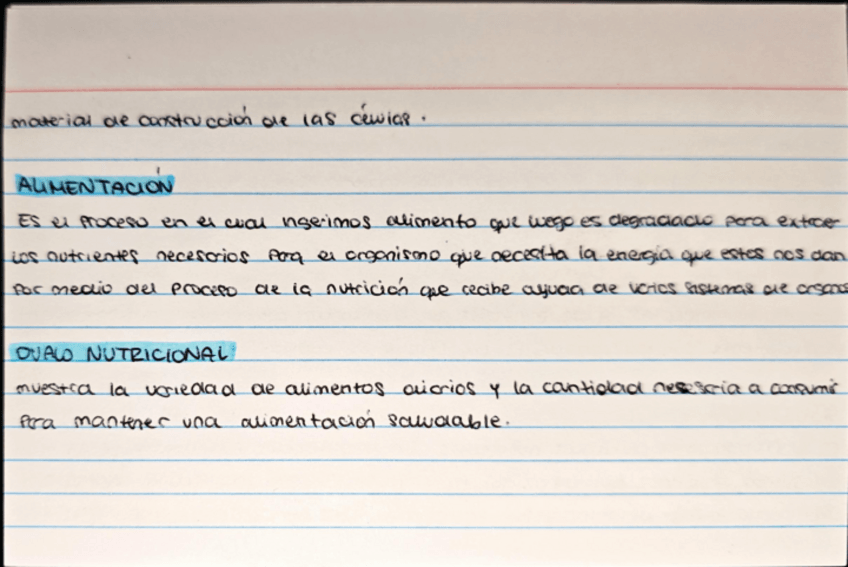 material de construcción de las células.
ALIMENTACIÓN
Es el proceso en el cual ingerimos alimento que luego es degradado para extraer
los nutrientes necesarios para el organismo que necesita la energía que estos nos dan
por medio del proceso de la nutrición que recibe ayuda de varios sistemas de órganos
OVALO NUTRICIONAL
muestra la variedad de alimentos diarios y la cantidad necesaria a consumir
para mantener una alimentación saludable.